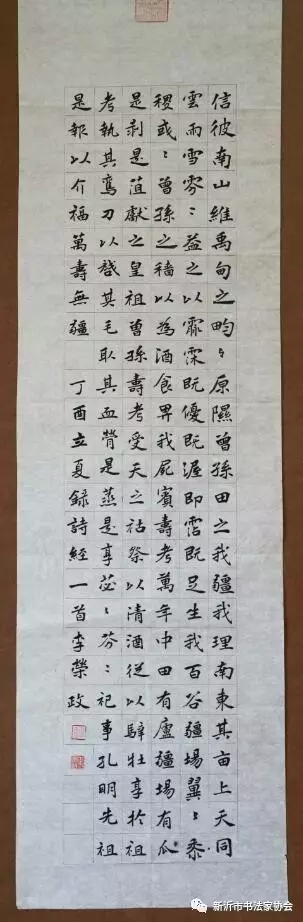 信彼南山維禹甸之畇〻原隰曾孫田之我疆我理南東其亩上天同
雲雨雪雰〻益之以霡霂既優既渥即霑既足生我百谷疆場翼〻黍
稷或〻曾孫之穡以為酒食畀我屍賓壽考萬年中田有廬疆場有瓜
是剥是菹獻之皇祖曾孫壽考受天之祜祭以清酒從以騂牡享於祖
考執其鸞刀以啟其毛取其血膋是蒸是享苾〻芬〻祀事孔明先祖
是報以介福萬壽無疆 丁酉立夏録詩經一首李榮政
新沂市书法家协会